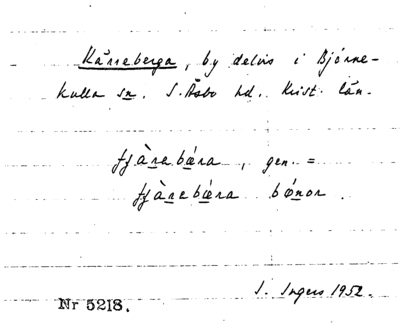 Kärreberga, by delvis i Björne-
kulla sn. S. Åsbo hd. Krist. län.
fjǻrebǽra, gen. =
fjǻrebǽra bǿnor.
I. Ingers 1952.
Nr 5218.